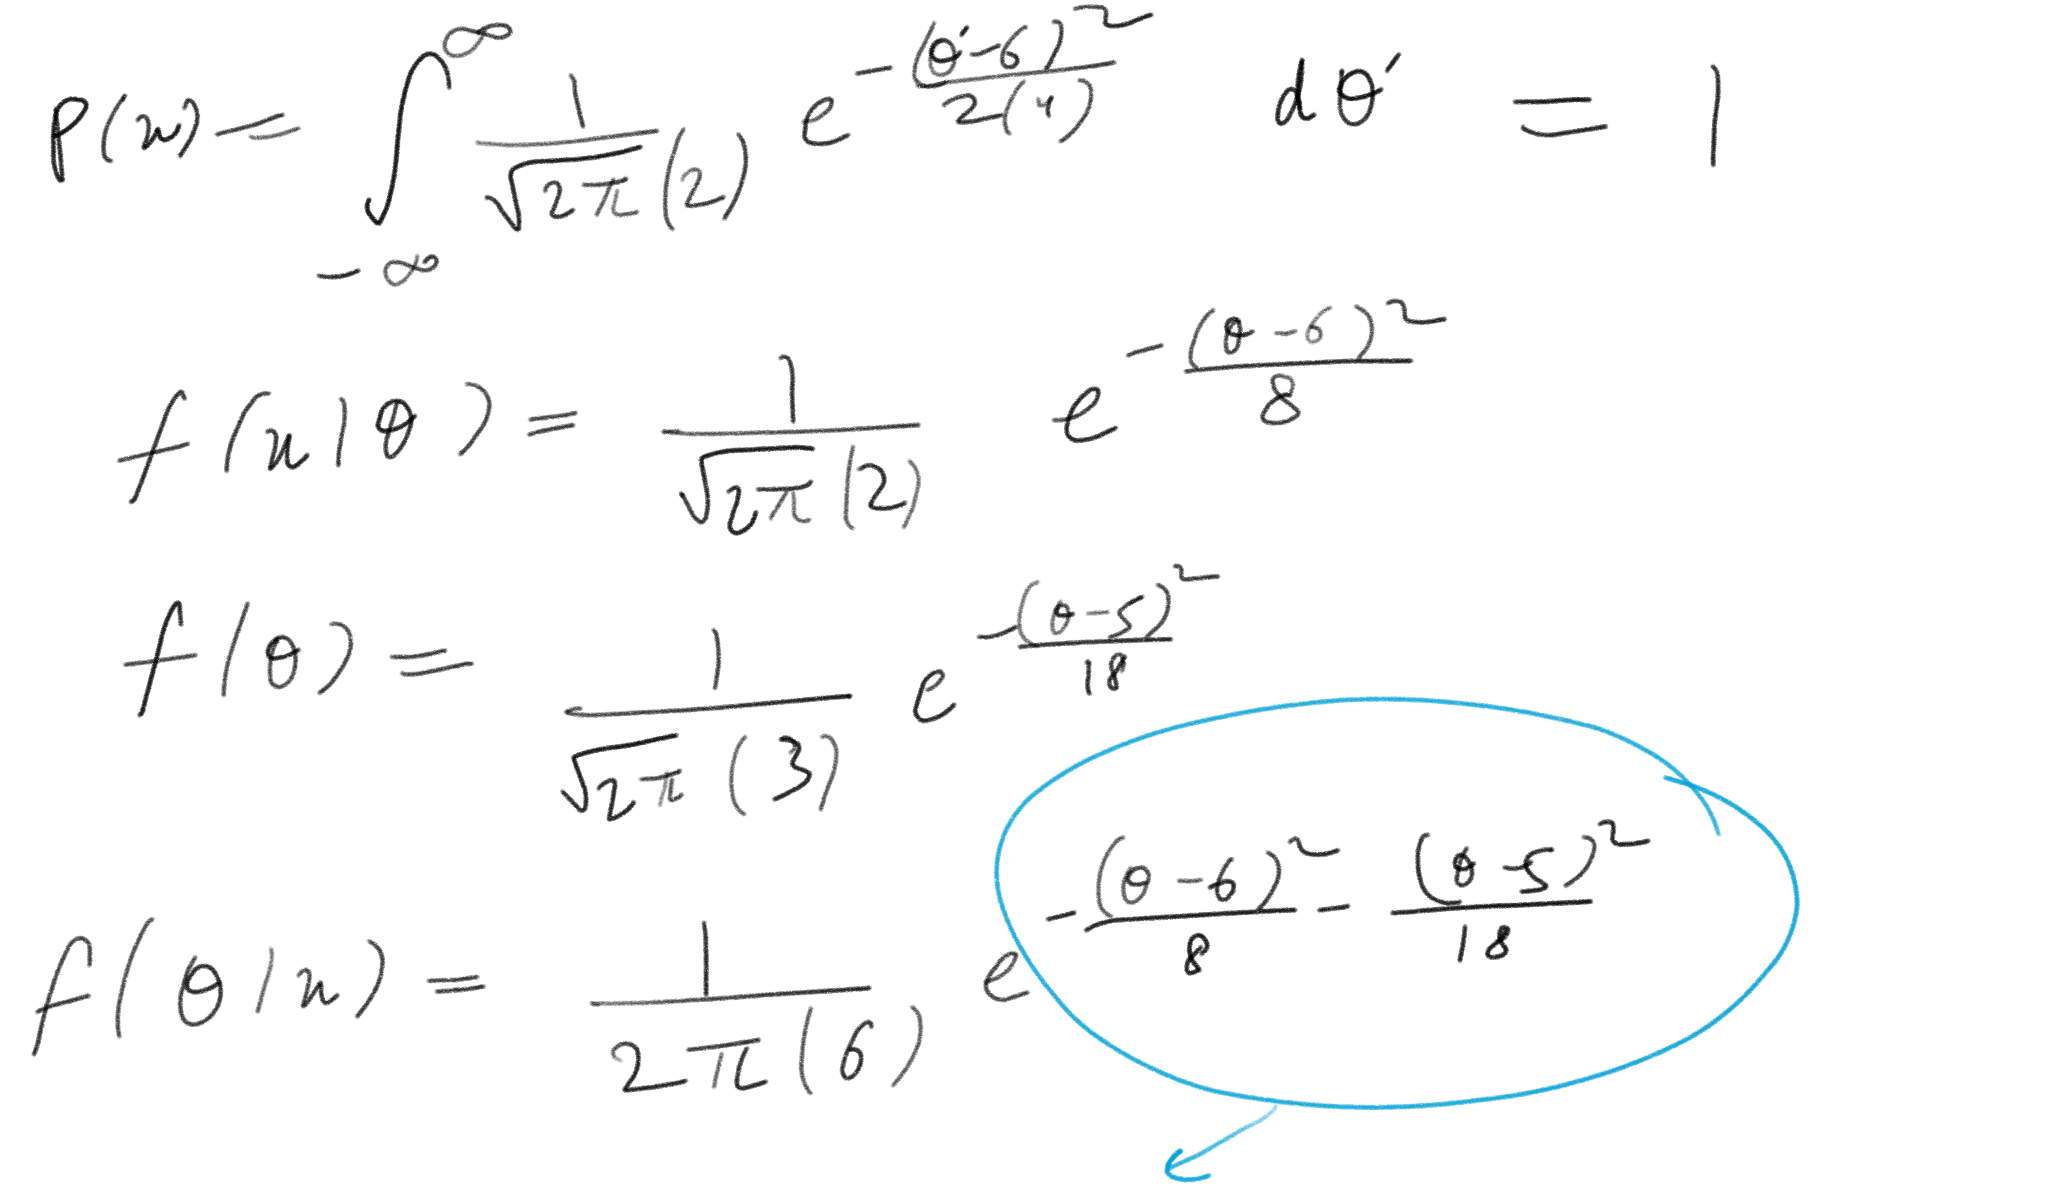 P(x) = ∫_{-∞}^{∞} \frac{1}{\sqrt{2π}(2)} e^{-\frac{(θ'-6)^2}{2(4)}} dθ' = 1
f(x|θ) = \frac{1}{\sqrt{2π}(2)} e^{-\frac{(θ-6)^2}{8}}
f(θ) = \frac{1}{\sqrt{2π}(3)} e^{-\frac{(θ-5)^2}{18}}
f(θ|x) = \frac{1}{2π(6)} e^{-\frac{(θ-6)^2}{8} - \frac{(θ-5)^2}{18}}